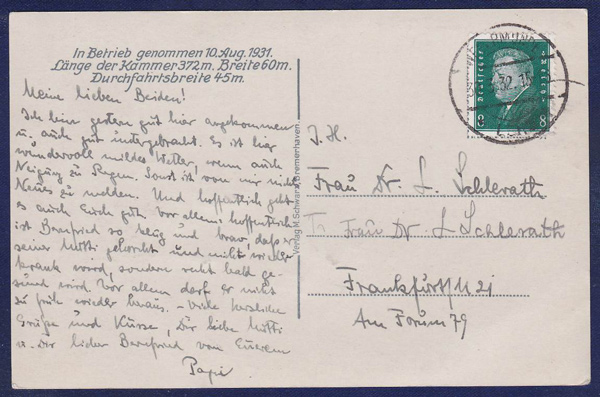 In Betrieb genommen 10. Aug. 1931.
Länge der Kammer 372 m. Breite 60 m.
Durchfahrtsbreite 45 m.
Meine lieben Beiden!
Ich bin gestern gut hier angekommen
u. auch gut untergebracht. Es ist hier
wundervoll mildes Wetter, wenn auch
Neigung zu Regen. Sonst ist von mir nichts
Neues zu melden. Und hoffentlich geht
es auch Euch gut. Vor allem hoffentlich
ist Bernfried so und brav, daß er
seiner Mutti gehorcht und nicht wieder
krank wird, sondern recht bald ge-
sund wird. Vor allem darf er nicht
zu früh wieder heraus. - Viele herzliche
Grüße und Küsse, Dir liebe Mutti
u. Dir lieber Bernfried von Eurem
Papi
Verlag M. Schwarz, Bremerhaven
Deutsches Reich
8 8
32.
Frau Dr. L. Schlerath
Frau Dr L Schlerath
Frankfurt/M 21
Am Forum 79